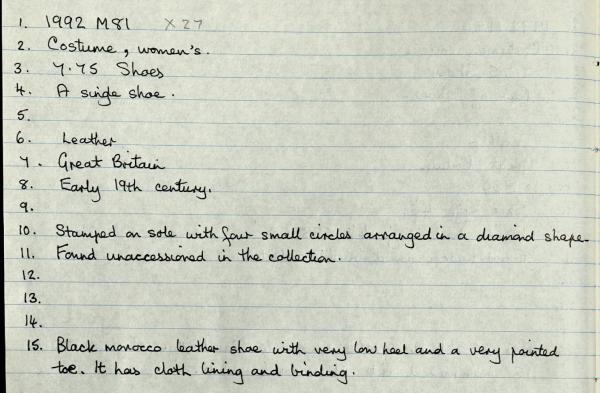 1. 1992 M81 X27
2. Costume, women's.
3. 7.75 Shoes
4. A single shoe.
5.
6. Leather
7. Great Britain
8. Early 19th century.
9.
10. Stamped on sole with four small circles arranged in a diamond shape.
11. Found unaccessioned in the collection.
12.
13.
14.
15. Black morocco leather shoe with very low heel and a very pointed
toe. It has cloth lining and binding.